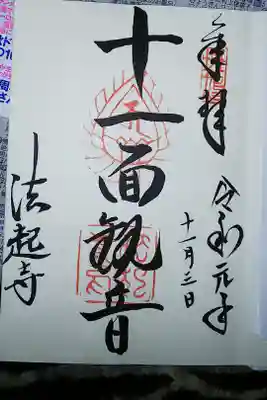 奉拝
令和元年
十一月三日
十一面観音
法起寺